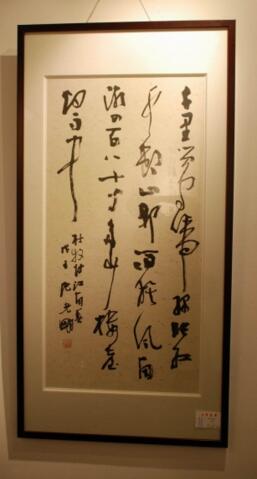 千里鶯啼綠映紅
水村山郭酒旗風南
朝四百八十寺多少樓臺
烟雨中
杜牧詩江南春
戊子